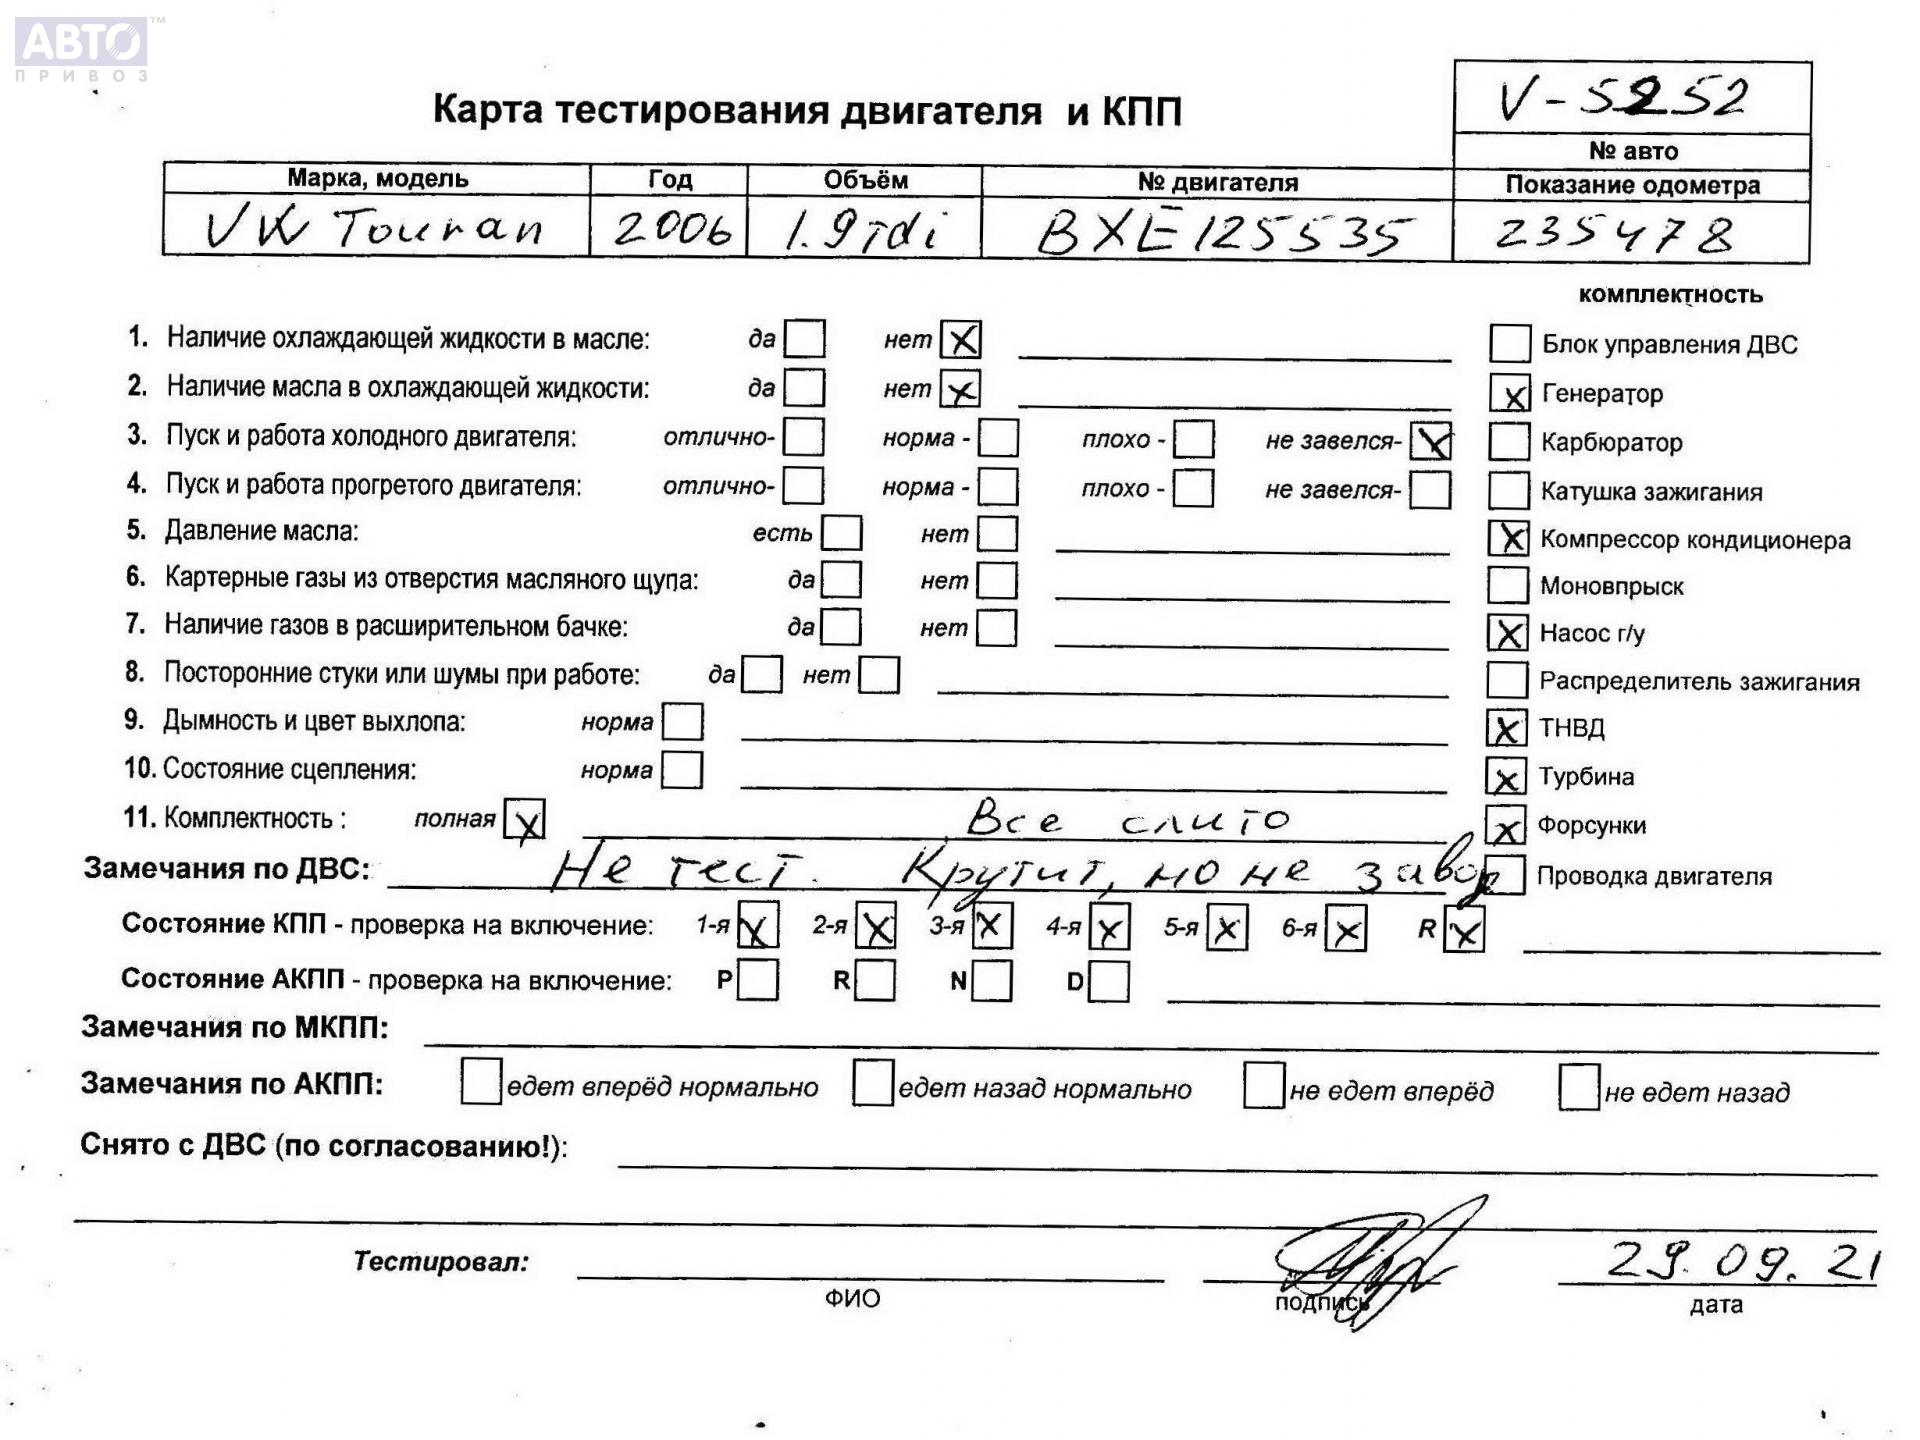 АВТО™
ПРИВОЗ
V-5252
Карта тестирования двигателя и КПП
№ авто
Марка, модель Год Объём № двигателя Показание одометра
VW Touran 2006 1.9 Tdi BXE125535 235478
комплектность
1. Наличие охлаждающей жидкости в масле: да нет X Блок управления ДВС
2. Наличие масла в охлаждающей жидкости: да нет X X Генератор
3. Пуск и работа холодного двигателя: отлично- норма - плохо - не завелся- X Карбюратор
4. Пуск и работа прогретого двигателя: отлично- норма - плохо - не завелся- Катушка зажигания
5. Давление масла: есть нет X Компрессор кондиционера
6. Картерные газы из отверстия масляного щупа: да нет Моновпрыск
7. Наличие газов в расширительном бачке: да нет X Насос г/у
8. Посторонние стуки или шумы при работе: да нет Распределитель зажигания
9. Дымность и цвет выхлопа: норма X ТНВД
10. Состояние сцепления: норма X Турбина
11. Комплектность : полная X Все слито X Форсунки
Замечания по ДВС: Не тест. Крутит, но не завод Проводка двигателя
Состояние КПП - проверка на включение: 1-я X 2-я X 3-я X 4-я X 5-я X 6-я X R X
Состояние АКПП - проверка на включение: P R N D
Замечания по МКПП:
Замечания по АКПП: едет вперёд нормально едет назад нормально не едет вперёд не едет назад
Снято с ДВС (по согласованию!):
Тестировал: 29.09.21
ФИО подпись дата